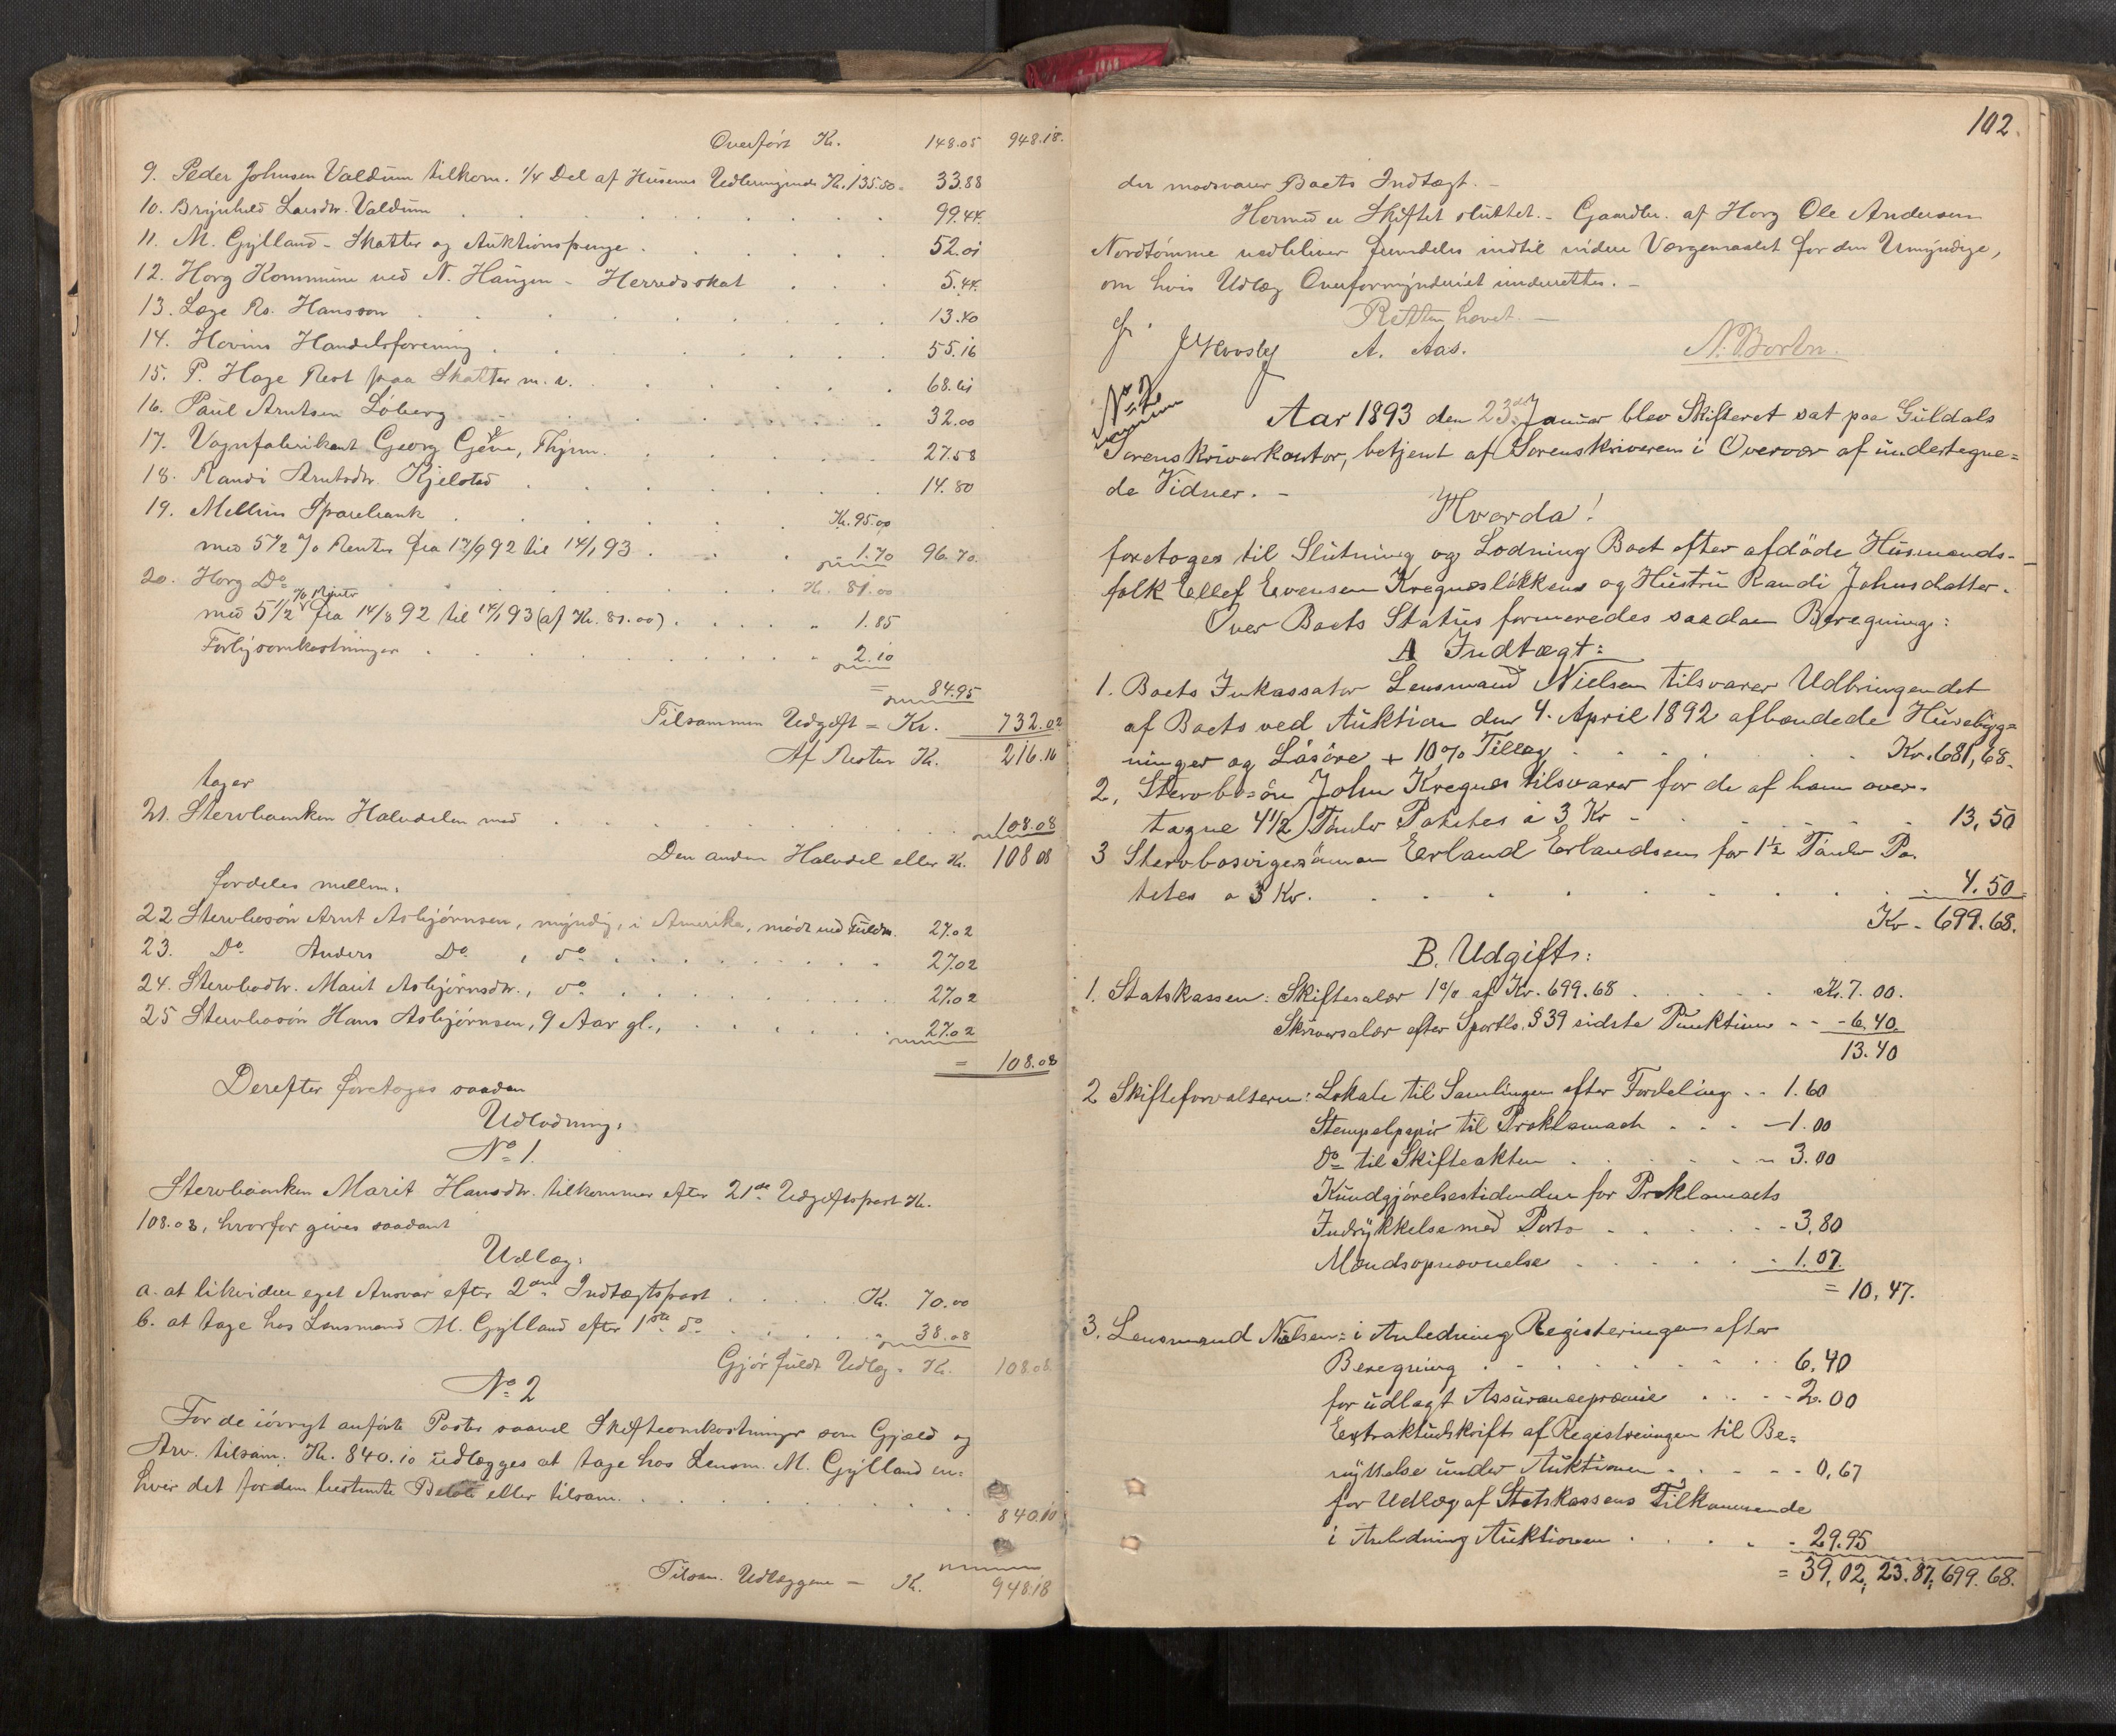 Overført Kr. 148.05 948.18.
9. Peder Johnsen Valdum tilkom. 1/4 Del af Husenes Udbringende Kr. 135.50 = 33.88
10. Brynhild Larsdtr. Valdum 99.44.
11. M. Gylland - Skatter og Auktionspenge 52.01
12. Horg Kommune ved N. Haugen - Herredsskat 5.44.
13. Læge Rs. Hansson 13.40
14. Hovins Handelsforening 55.16
15. P. Hage Rest paa Skatter m. v. 68.61
16. Paul Arntsen Løberg 32.00
17. Vognfabrikant Georg Thjem. 27.58
18. Randi Arntsdtr. Kjelstad 14.80
19. Melhus Sparebank Kr. 95.00
med 5 1/2 % Renter fra 92 til 14/1 93 1.70 96.70.
20. Horg Do. Kr. 81.00
med 5 1/2 % Renter fra 14/8 92 til 14/1 93 (af Kr. 81.00) " 1.85
Forligsomkostninger " 2.10
= 84.95
Tilsammen Udgift = Kr. 732.02
Af Resten Kr. 216.16
tager
21. Stervboenken Halvdelen med 108.08
Den anden Halvdel eller Kr. 108 08
fordeles mellem:
22 Stervbosøn Arnt Asbjørnsen, myndig, i Amerika, mødt ved Fuldm. 27.02
23. Do Anders Do , do 27.02
24. Stervbodtr. Marit Asbjørnsdtr., do 27.02
25 Stervbosøn Hans Asbjørnsen, 9 Aar gl., 27.02
= 108.08
Derefter foretoges saadan
Udlodning:
No 1.
Stervboenken Marit Hansdtr. tilkommer efter 21de Udgiftspost Kr.
108.08, hvorfor gives saadant
Udlæg:
a. at likvidere eget Ansvar efter 2den Indtægtspost Kr. 70.00
b. at tage hos Lensmand M. Gylland efter 1ste do " 38.08
Gjør fuldt Udlæg = Kr. 108.08
No 2
For de iøvrigt anførte Poster saavel Skifteomkostninger som Gjæld og
Arv. tilsam. Kr. 840.10 udlægges at tage hos Lensm. M. Gylland en-
hver det for dem bestemte Beløb eller tilsam.
840.10
Tilsam. Udlæggene — Kr. 948.18
102.
der modsvarer Boets Indtægt. -
Hermed er Skiftet sluttet. - Gaardbr. af Horg Ole Andersen
Nordtømme vedbliver fremdeles indtil videre Værgemaalet for den Umyndige,
om hvis Udlæg Overformynderiet underrettes. -
Retten hævet. —
A. Aas.
No 2
Aar 1893 den 23de Januar blev Skifteret sat paa Guldals
Sorenskriverkontor, betjent af Sorenskriveren i Overvær af undertegne=
de Vidner. -
Hvorda!
foretoges til Slutning og Lodning Boet efter afdøde Husmands-
folk Ellef Evensen Kregnesløkken og Hustru Randi Johnsdatter.
Over Boets Status formeredes saadan Beregning:
A Indtægt:
1. Boets Inkassator Lensmand Nielsen tilsvarer Udbringendet
af Boets ved Auktion den 4. April 1892 afhændede Husebyg=
ninger og Løsøre + 10 % Tillæg Kr. 681,68.
2, Stervbosøn John Kregnes tilsvarer for de af ham over-
tagne 4 1/2 Tønder Potetes à 3 Kr 13,50
3 Stervbosvigersønnen Erland Erlandsen for 1 1/2 Tønder Po-
tetes a 3 Kr. 4.50
Kr - 699.68.
B. Udgift:
1. Statskassen: Skiftesalær 1 % af Kr. 699.68 Kr. 7. 00.
Skriversalær efter Sportls. § 39 sidste Punktum - 6,40.
13.40
2 Skifteforvalteren: Lokale til Samlingen efter Fordeling 1.60
Stempelpapir til Proklamaet 1.00
Do til Skifteakten 3.00
Kundgjørelsestidenden for Proklamaets
Indrykkelse med Porto 3,80
Mændsopnævnelse 1.07.
= 10,47.
3. Lensmand Nielsen: i Anledning Registeringen efter
Beregning 6,40
for udlagt Assurancepræmie 2.00
Extraktudskrift af Registreringen til Be=
nyttelse under Auktionen 0,67
for Udlæg af Statskassens Tilkommende
i Anledning Auktionen 29.95
= 39,02, 23.87, 699.68.